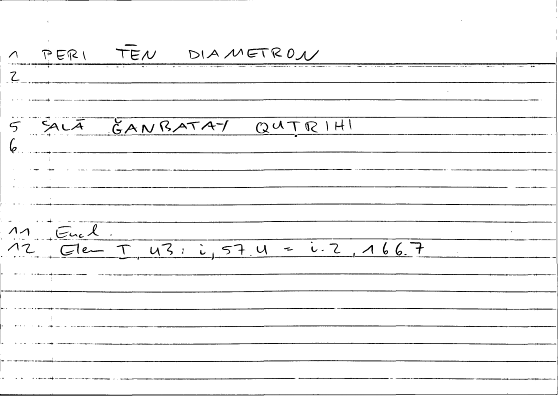 1 PERI TĒN DIAMETRON
2
5 ʿALĀ ǦANBATAY QUṬRIHI
6
11 Eucl.
12 Elem I, 43: i, 57.4 = i.2, 166.7